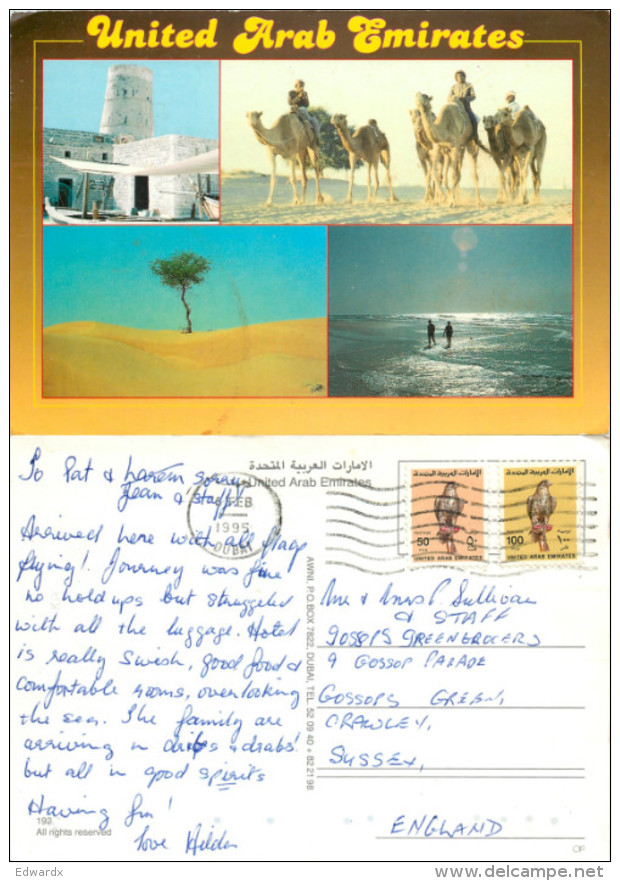 United Arab Emirates
To Pat & harem sorry
Jean & staff!
Arrived here with all flags
flying! Journey was fine
no hold ups but struggled
with all the luggage. Hotel
is really Swish, good food &
comfortable rooms, overlooking
the sea. The family are
arriving in dribs & drabs!
but all in good spirits
Having fun!
love Hilda
192.
All rights reserved
الامارات العربية المتحدة
United Arab Emirates
FEB
1995
DUBAI
AWNI, P.O.BOX 7822, DUBAI, TEL. 52 09 40 + 82 21 98
الامارات العربية المتحدة
50
٥٠
UNITED ARAB EMIRATES
الامارات العربية المتحدة
100
١٠٠
UNITED ARAB EMIRATES
Mr & Mrs P. Sullivan
& STAFF
GOSSOPS GREENGROCERS
9 GOSSOP PARADE
GOSSOPS GREEN,
CRAWLEY,
SUSSEX,
ENGLAND
CP
Edwardx
www.delcampe.net